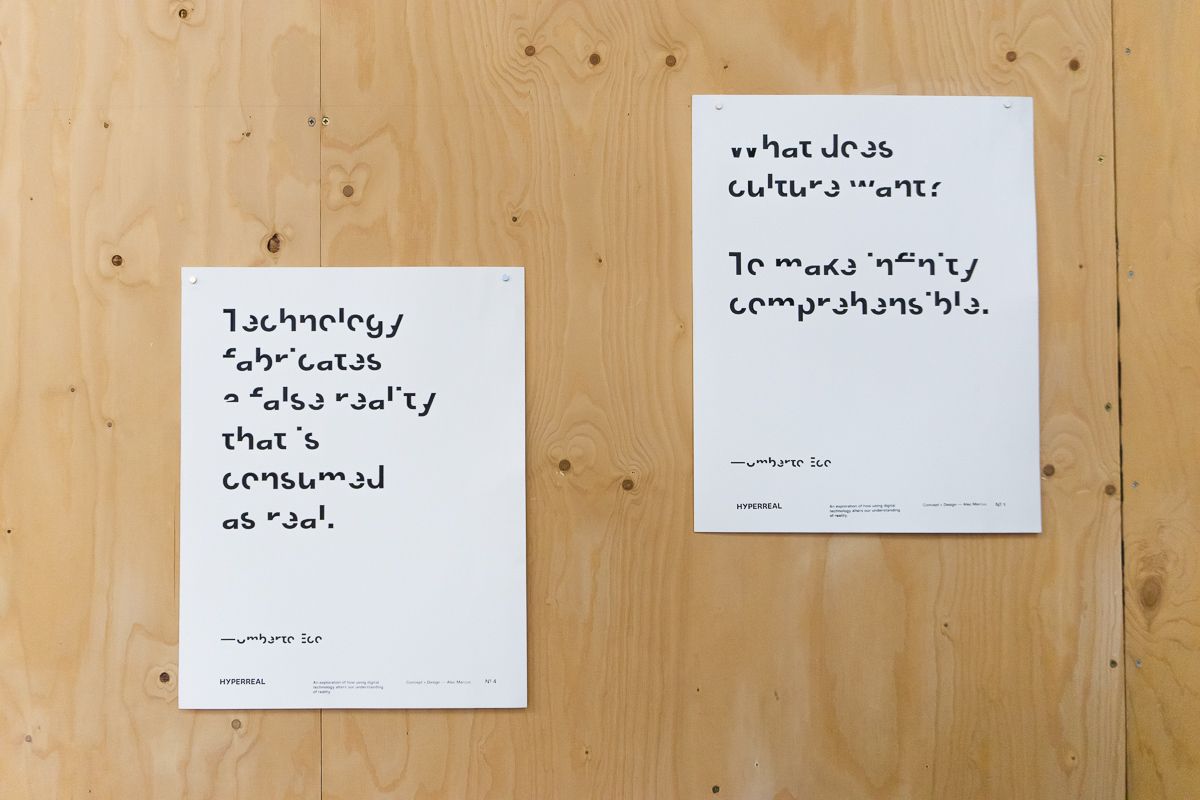 Technology
fabricates
a false reality
that is
consumed
as real.
—Umberto Eco
HYPERREAL
An exploration of how using digital
technology alters our understanding
of reality.
Concept + Design — Alec Marcus
Nº 4
What does
culture want?
To make infinity
comprehensible.
—Umberto Eco
HYPERREAL
An exploration of how using digital
technology alters our understanding
of reality.
Concept + Design — Alec Marcus